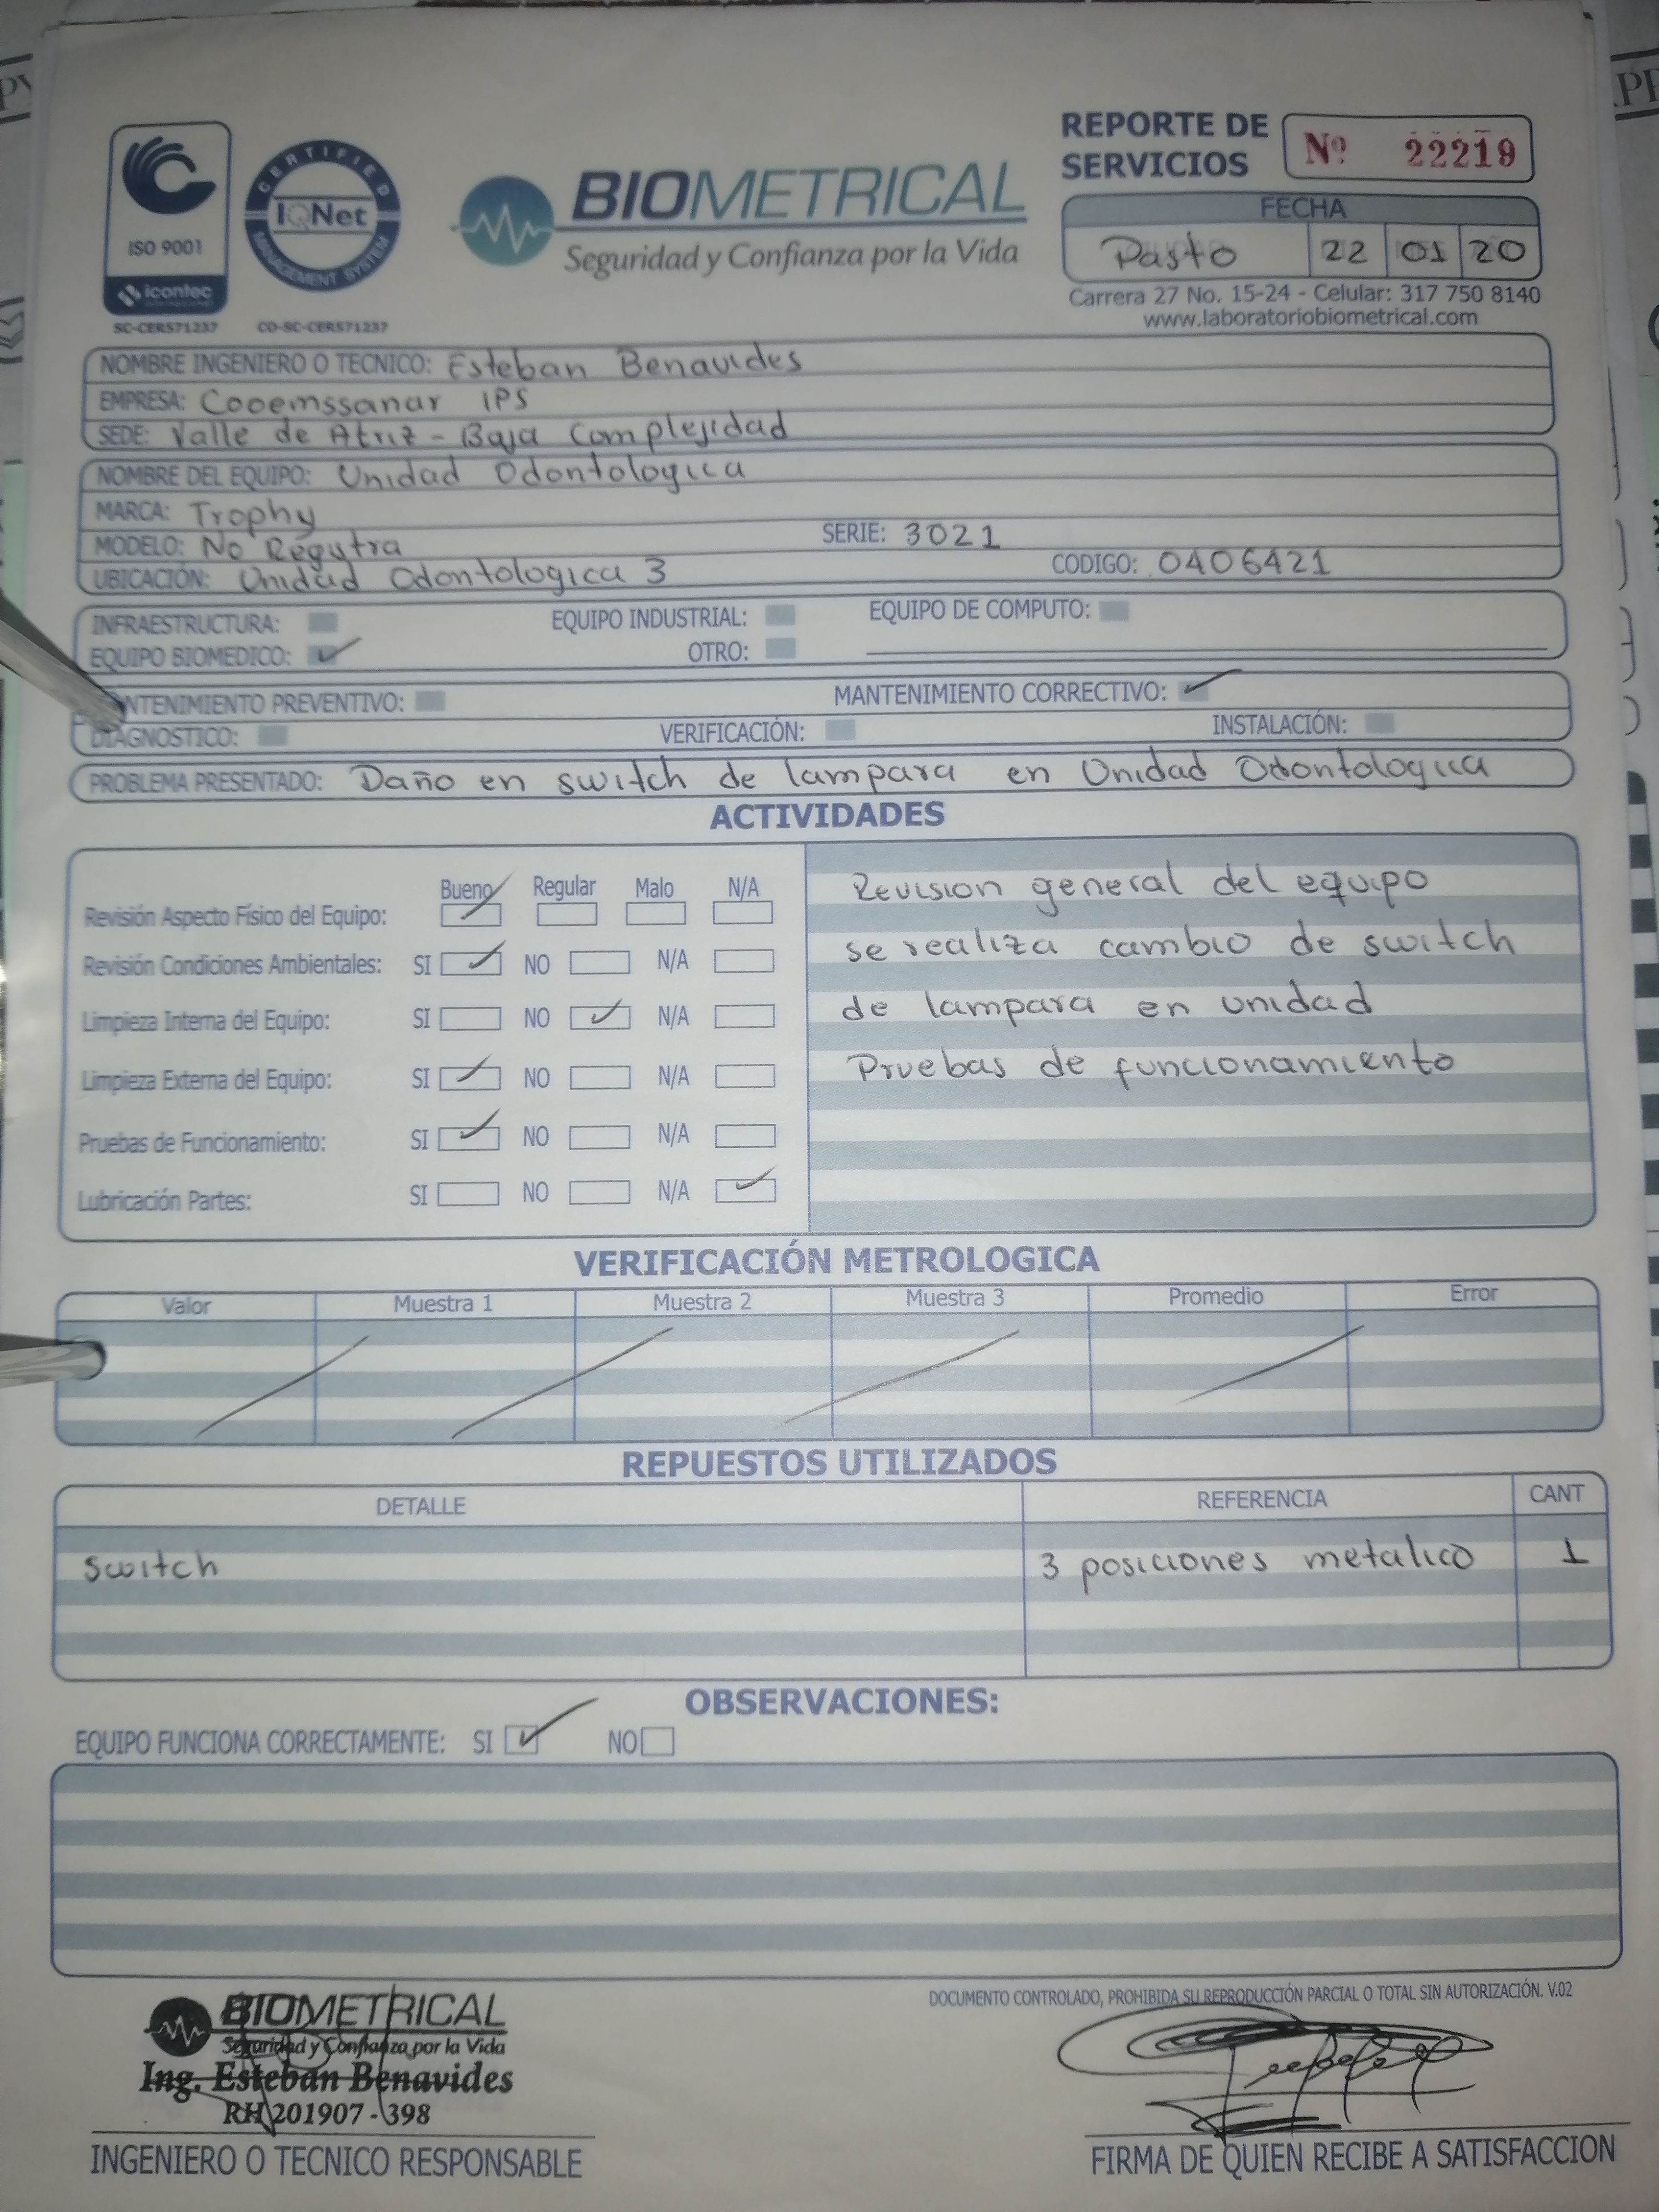 REPORTE DE
SERVICIOS
Nº 22219
ISO 9001
icontec
SC-CER571237
CERTIFIED
IQNet
MANAGEMENT SYSTEM
CO-SC-CER571237
BIOMETRICAL
Seguridad y Confianza por la Vida
FECHA
Pasto 22 01 20
Carrera 27 No. 15-24 - Celular: 317 750 8140
www.laboratoriobiometrical.com
NOMBRE INGENIERO O TECNICO: Esteban Benavides
EMPRESA: Cooemssanar IPS
SEDE: Valle de Atriz - Baja Complejidad
NOMBRE DEL EQUIPO: Unidad Odontologica
MARCA: Trophy
MODELO: No Registra SERIE: 3021
UBICACIÓN: Unidad Odontologica 3 CODIGO: 0406421
INFRAESTRUCTURA: EQUIPO INDUSTRIAL: EQUIPO DE COMPUTO:
EQUIPO BIOMEDICO: ✓ OTRO:
NTENIMIENTO PREVENTIVO: MANTENIMIENTO CORRECTIVO: ✓
DIAGNOSTICO: VERIFICACIÓN: INSTALACIÓN:
PROBLEMA PRESENTADO: Daño en switch de lampara en Unidad Odontologica
ACTIVIDADES
Bueno Regular Malo N/A
Revisión Aspecto Físico del Equipo: ✓
Revisión Condiciones Ambientales: SI ✓ NO N/A
Limpieza Interna del Equipo: SI NO ✓ N/A
Limpieza Externa del Equipo: SI ✓ NO N/A
Pruebas de Funcionamiento: SI ✓ NO N/A
Lubricación Partes: SI NO N/A ✓
Revision general del equipo
se realiza cambio de switch
de lampara en unidad
Pruebas de funcionamiento
VERIFICACIÓN METROLOGICA
Valor Muestra 1 Muestra 2 Muestra 3 Promedio Error
REPUESTOS UTILIZADOS
DETALLE REFERENCIA CANT
switch 3 posiciones metalico 1
OBSERVACIONES:
EQUIPO FUNCIONA CORRECTAMENTE: SI ✓ NO
DOCUMENTO CONTROLADO, PROHIBIDA SU REPRODUCCIÓN PARCIAL O TOTAL SIN AUTORIZACIÓN. V.02
BIOMETRICAL
Seguridad y Confianza por la Vida
Ing. Esteban Benavides
RH 201907 - 398
INGENIERO O TECNICO RESPONSABLE
FIRMA DE QUIEN RECIBE A SATISFACCION